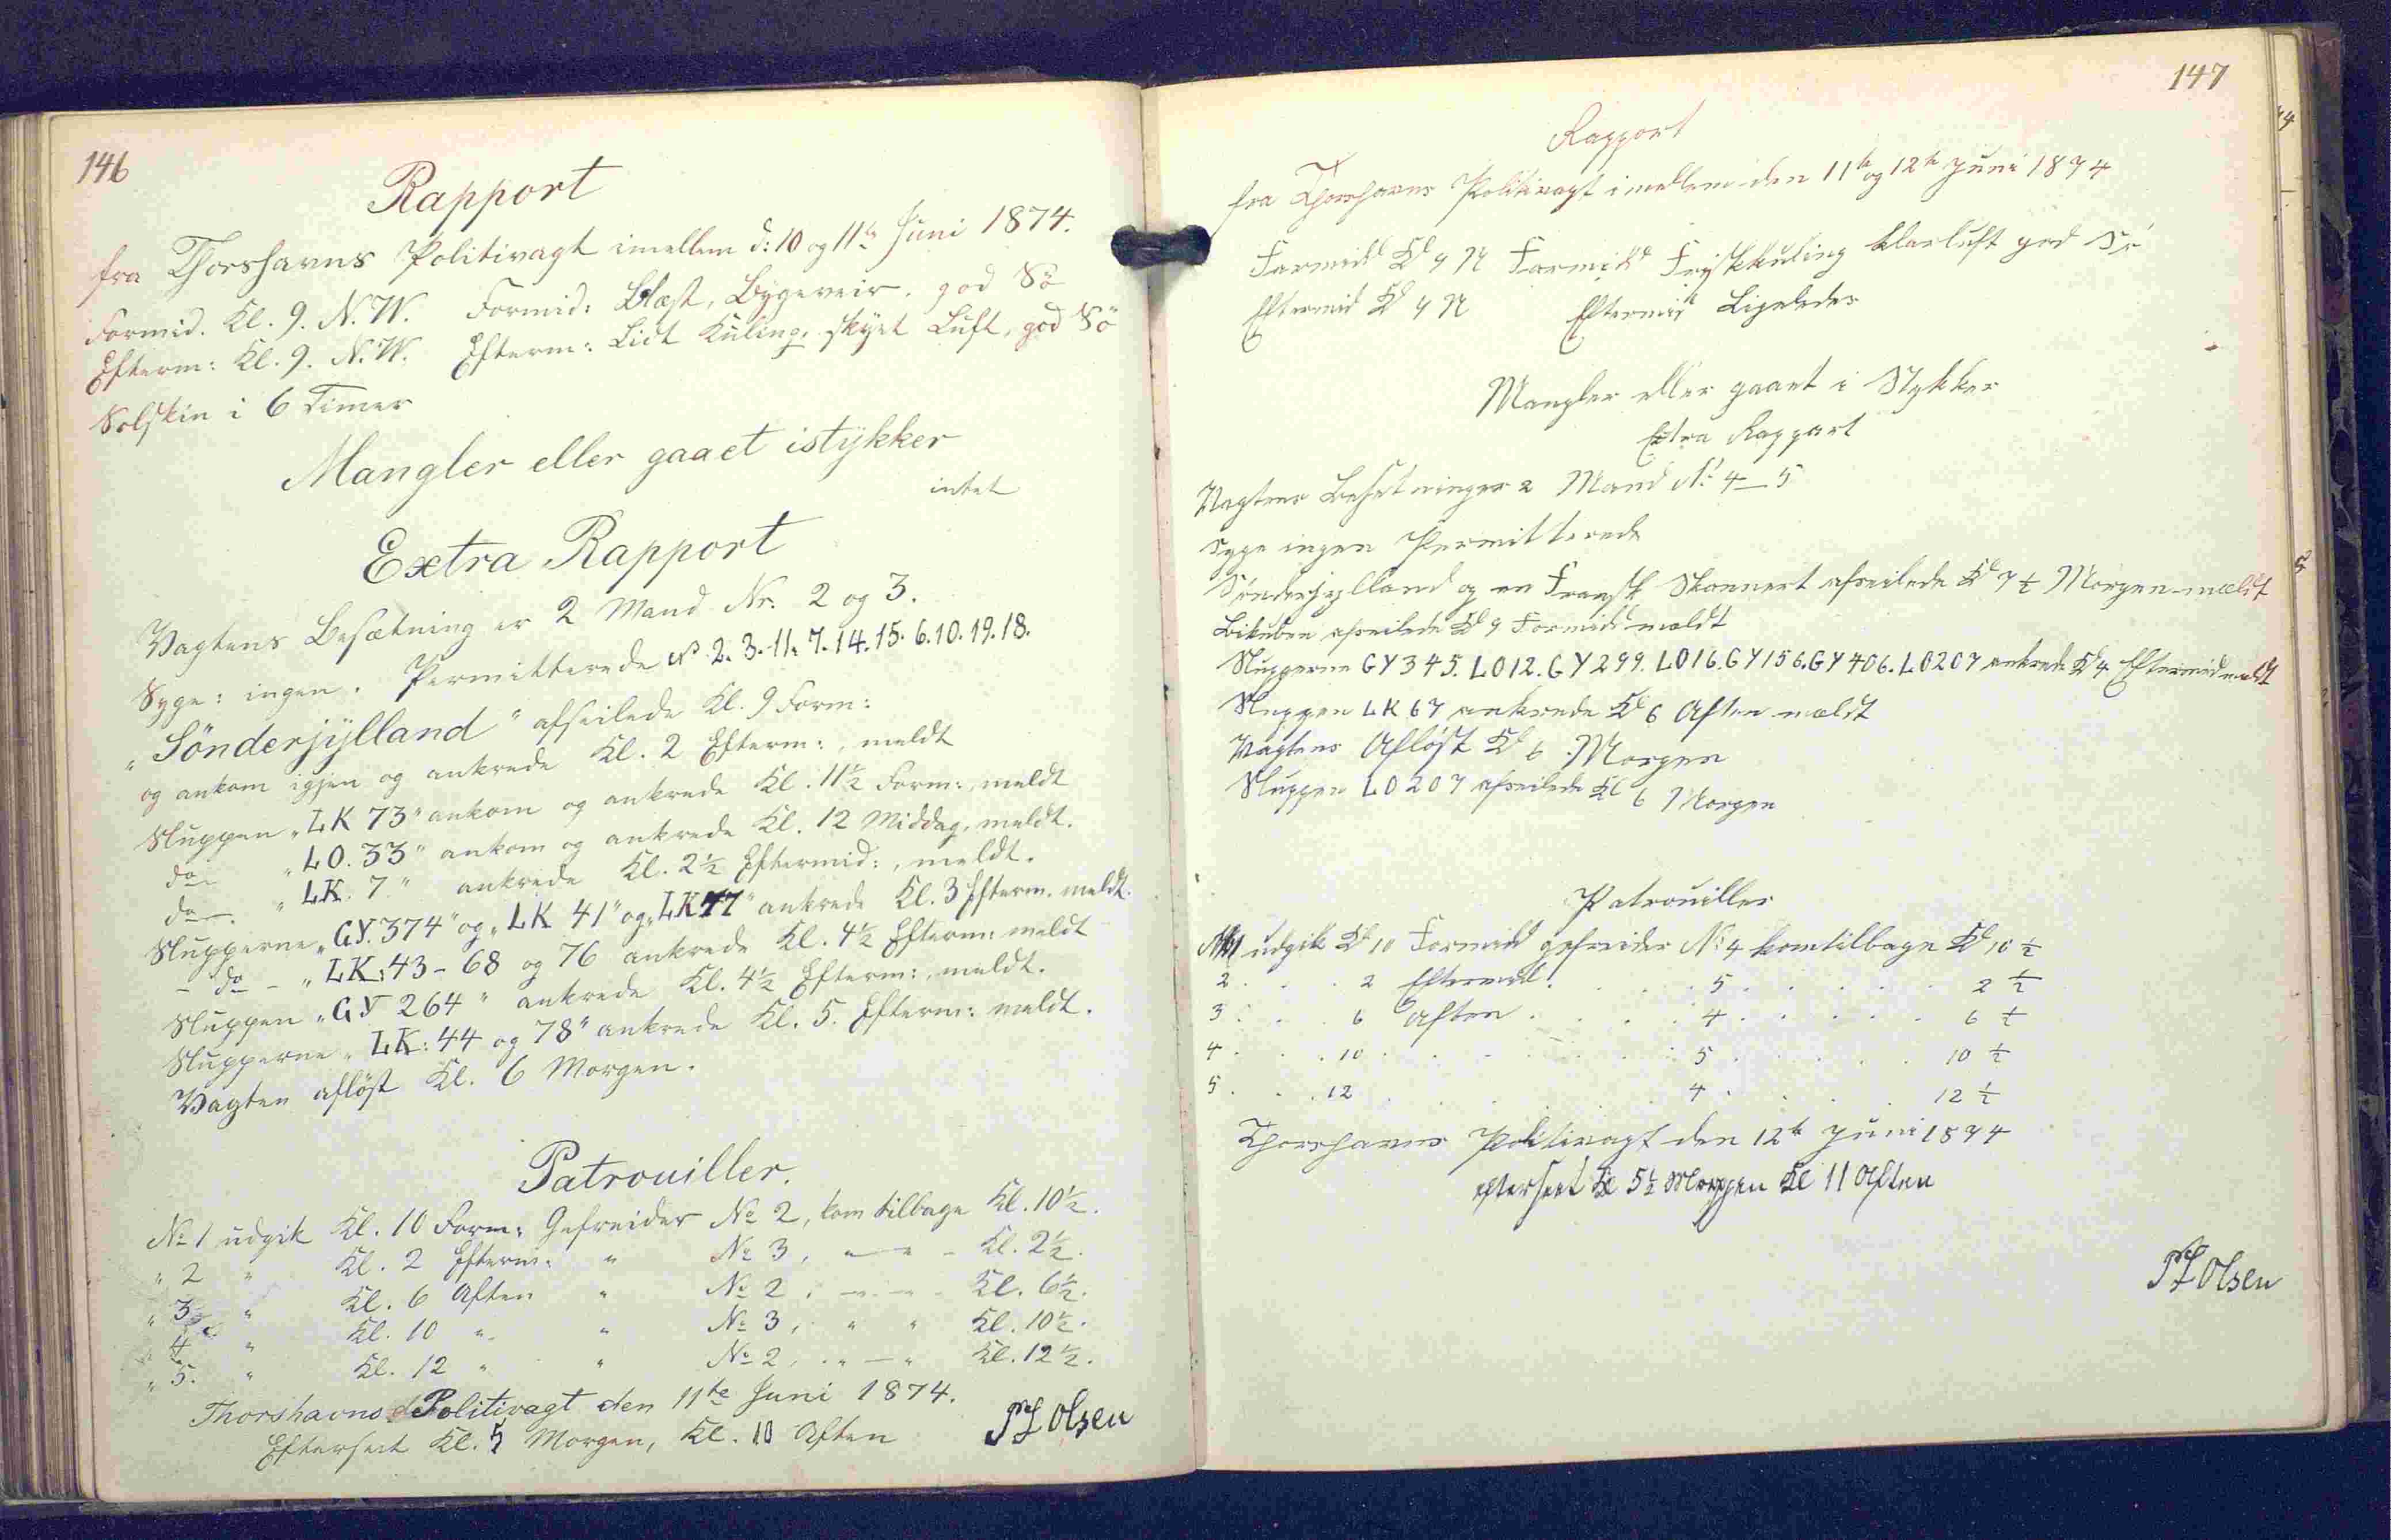 146
Rapport
fra Thorshavns Politivagt imellem d: 10 og 11te Juni 1874.
Formid. Kl. 9. N.W. Formid: Blæst, Bygeveir, god Sö
Efterm: Kl. 9. N.W. Efterm: Lidt Kuling, skyet Luft, god Sö
Solskin i 6 Timer
Mangler eller gaaet istykker
intet
Extra Rapport
Vagtens Besætning er 2 Mand Nr. 2 og 3.
Syge: ingen. Permitterede No 2. 3. 11. 7. 14. 15. 6. 10. 19. 18.
"Sönderjylland" afseilede Kl. 9 Form:
og ankom igjen og ankrede Kl. 2 Efterm:, meldt
Sluppen "LK 73" ankom og ankrede Kl. 11½ Form:, meldt
do "LO. 33" ankom og ankrede Kl. 12 Middag, meldt.
do "LK. 7" ankrede Kl. 2½ Eftermid:, meldt.
Slupperne "GY. 374" og "LK 41" og "LK 77" ankrede Kl. 3 Efterm. meldt.
- do - "LK: 43 - 68 og 76 ankrede Kl. 4½ Efterm: meldt
Sluppen "GY 264" ankrede Kl. 4½ Efterm:, meldt.
Slupperne "LK: 44 og 78" ankrede Kl. 5. Efterm: meldt.
Vagten aflöst Kl. 6 Morgen.
Patrouiller.
No 1 udgik Kl. 10 Form: Gefreider No 2, kom tilbage Kl. 10½.
" 2 " Kl. 2 Efterm: " No 3, " - " - Kl. 2½.
" 3 " Kl. 6 Aften " No 2, " - " - Kl. 6½.
" 4 " Kl. 10 " " No 3, " " Kl. 10½.
" 5. " Kl. 12 " " No 2, " - " Kl. 12½.
Thorshavns Politivagt den 11te Juni 1874.
Efterseet Kl. 5 Morgen, Kl. 10 Aften
Olsen
147
Rapport
fra Thorshavns Politivagt imellem den 11te og 12te Juni 1874
Formidd Kl 9 N Formidd Friskkuling klarluft god Sö
Eftermid Kl 9 N Eftermid Ligeledes
Mangler eller gaaet i Stykker
Extra Rapport
Vagtens Besetninger 2 Mand No 4 - 5
Syge ingen Permitterede
Sönderjylland og en Fransk Skonnert afseilede Kl 7½ Morgen meldt
Bikuben afseilede Kl 9 Formidd meldt
Slupperne GY 345. LO 12. GY 299. LO 16. GY 156. GY 406. LO 207 ankrede Kl 4 Eftermid meldt
Sluppen LK 67 ankrede Kl 6 Aften meldt
Vagtens Aflöst Kl 6 Morgen
Sluppen LO 207 afseilede Kl 6 Morgen
Patrouiller
No 1 udgik Kl 10 Formidd gefreider No 4 kom tilbage Kl 10½
2 . . . 2 Eftermid . . . . 5 . . . . . 2½
3 . . . 6 Aften . . . . 4 . . . . . 6½
4 . . . 10 . . . . . . . 5 . . . . . 10½
5 . . . 12 . . . . . . . 4 . . . . . 12½
Thorshavns Politivagt den 12te Juni 1874
efterseet Kl 5½ Morgen Kl 11 Aften
Olsen